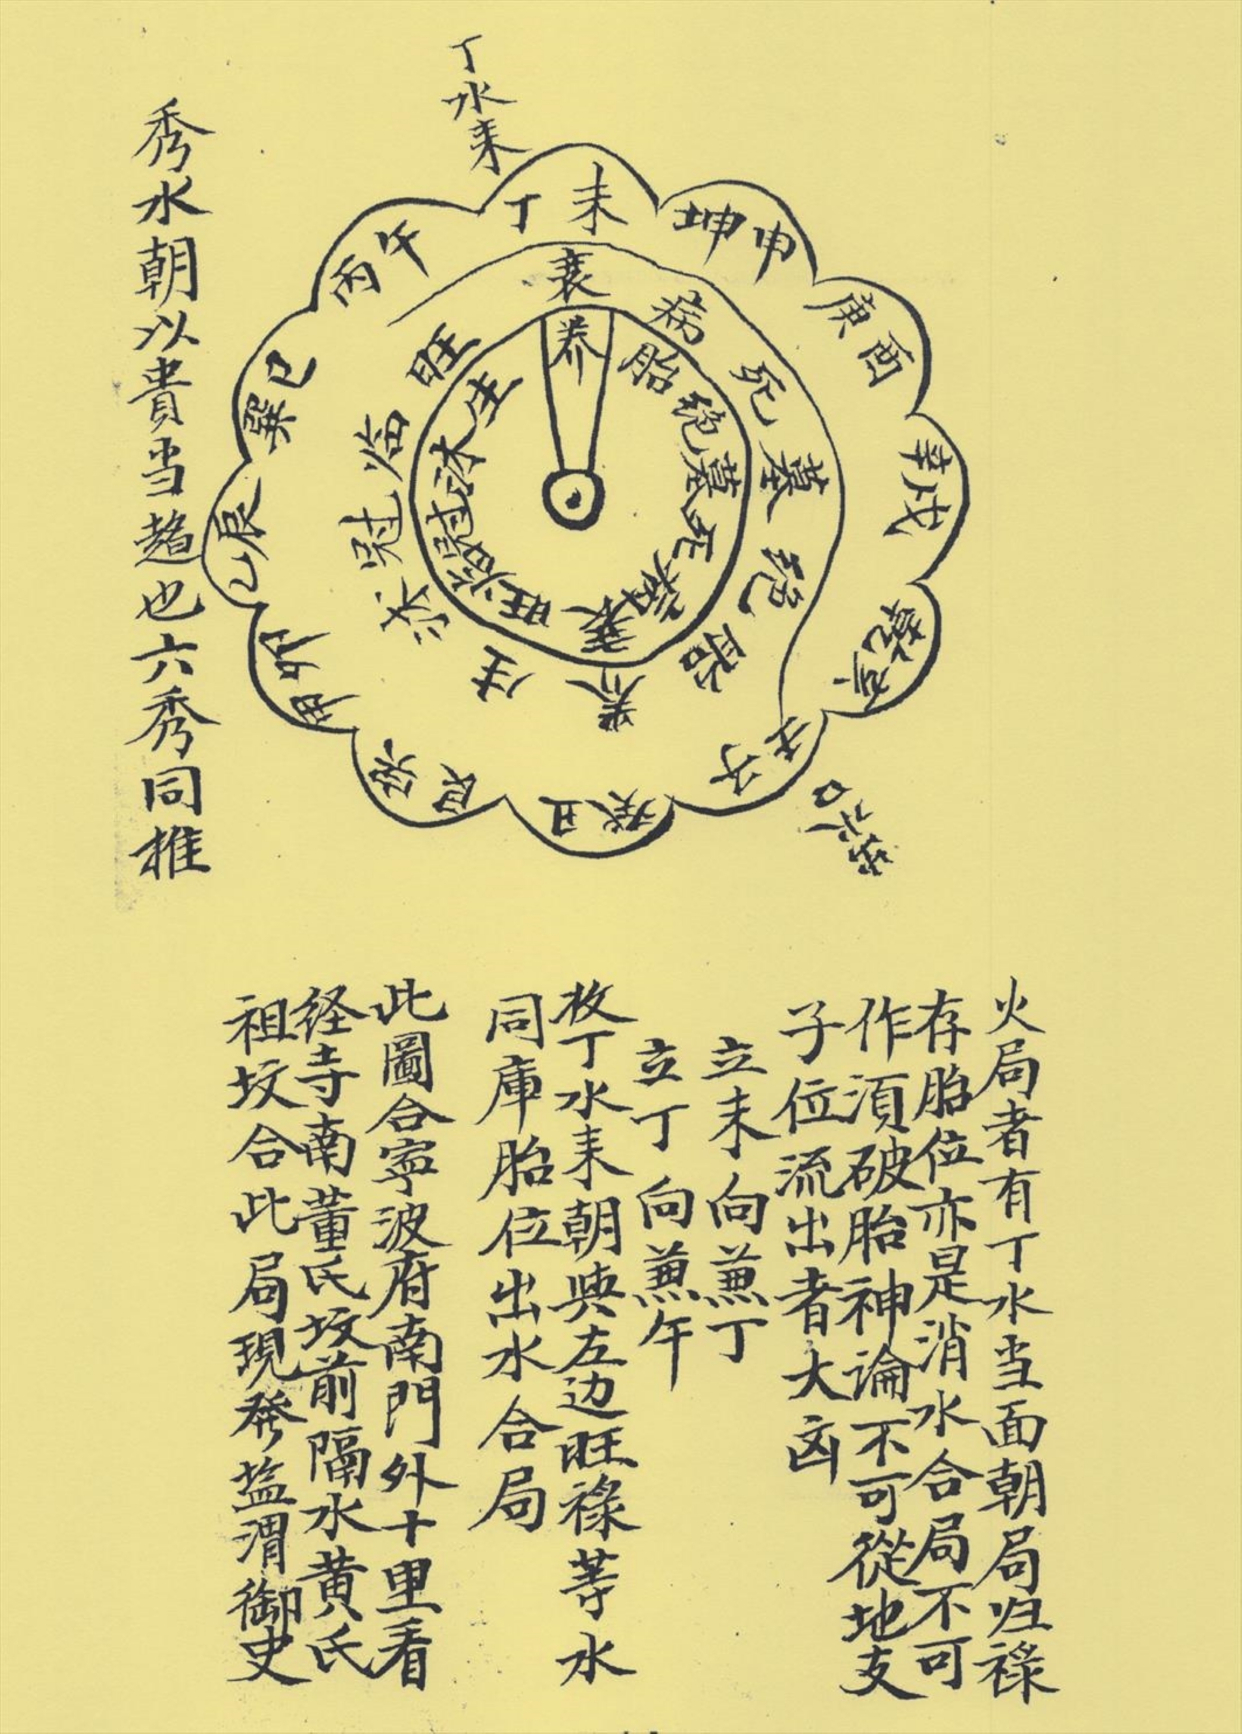 丁水耒
丁未
坤申
庚酉
辛戌
乾亥
壬子
癸丑
艮寅
甲卯
乙辰
巽巳
丙午
衰
病
死
墓
绝
胎
养
生
沐
冠
临
旺
养
胎
绝
墓
死
病
衰
旺
临
冠
沐
生
秀水朝以貴当趋也六秀同推
火局者有丁水当面朝局归祿
存胎位亦是消水合局不可
作須破胎神論不可從地支
子位流出者大凶
立未向兼丁
立丁向兼午
枚丁水耒朝與左边旺祿等水
同庫胎位出水合局
此圖合寧波府南門外十里看
经寺南董氏坟前隔水黄氏
祖坟合此局現發益渭御史